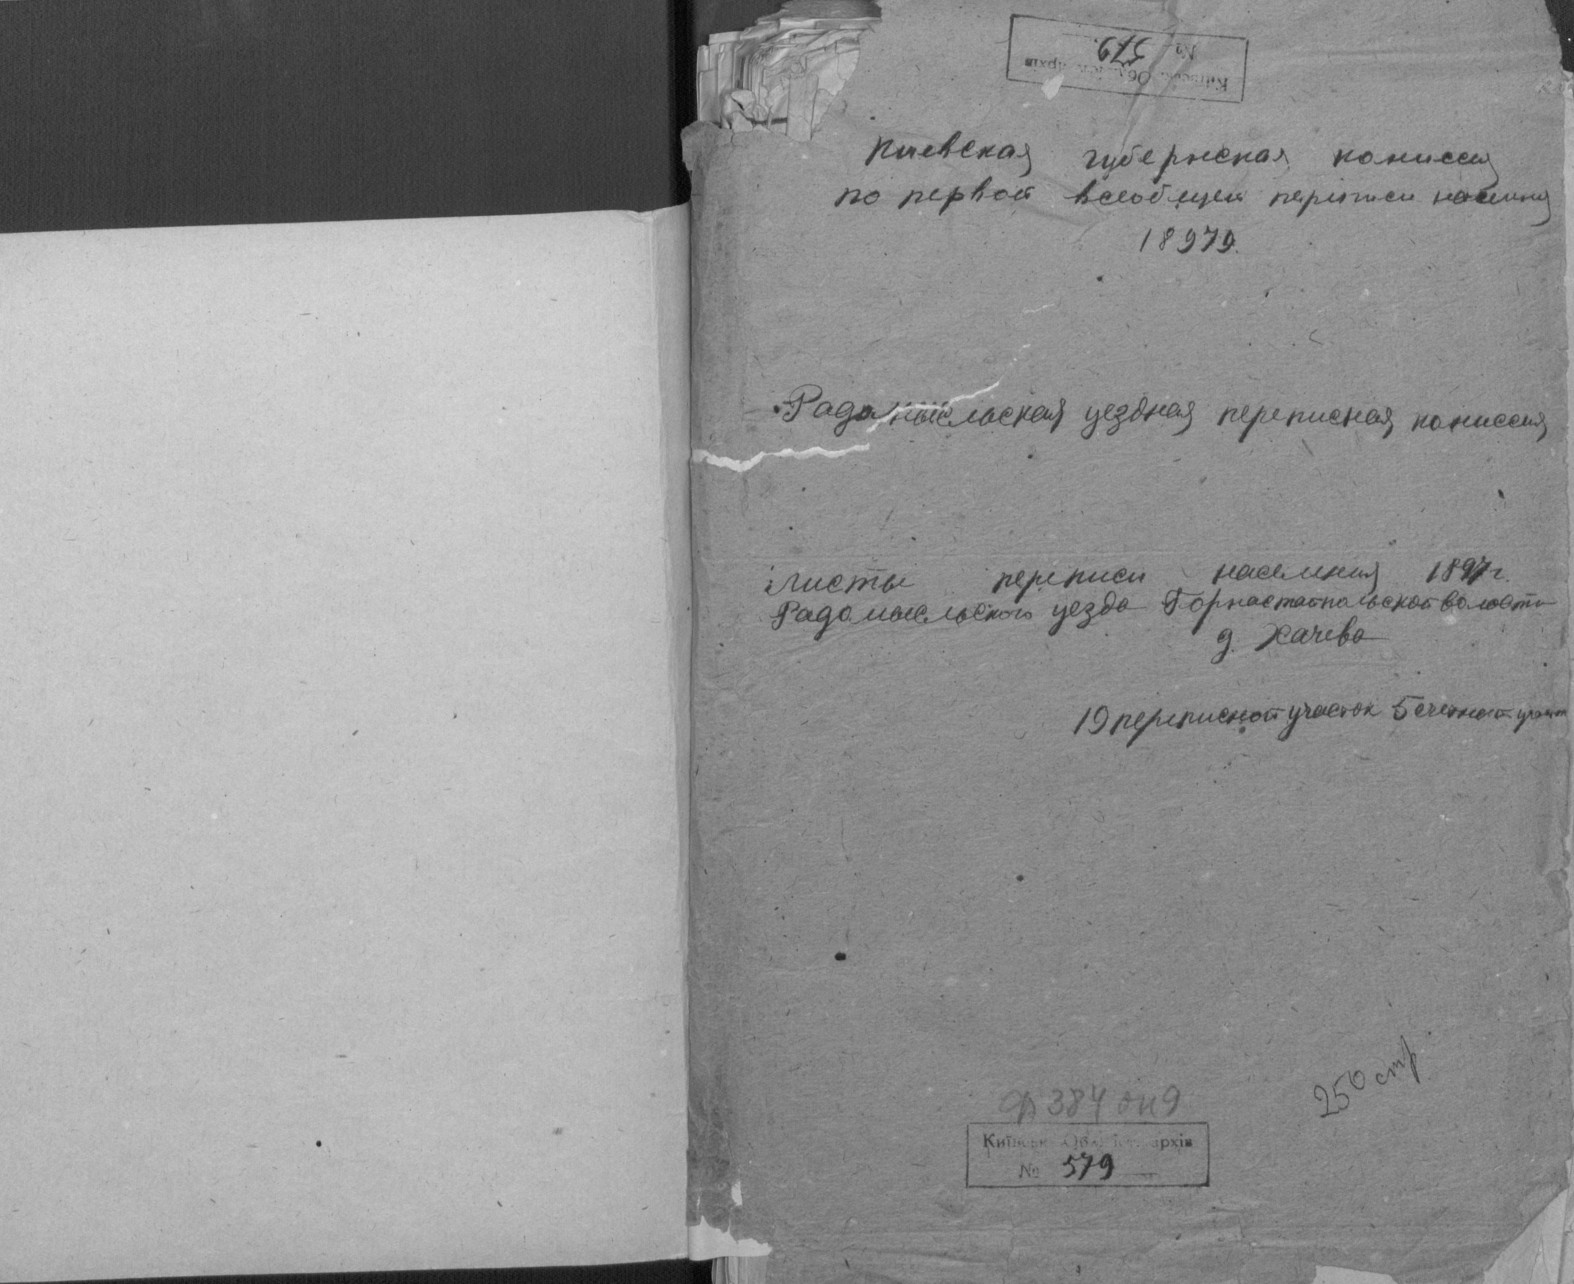 Київськ. Обл. Іст. архів
№ 579.
Киевская губернская комиссия
по первой всеобщей переписи населения
1897г.
Радомысльская уездная переписная комиссия
Листы переписи населения 1897г.
Радомысльского уезда Горностайпольской волости
д. Хачева
19 переписной участок 5 счетной участок
250 стр
Ф 384 оп 9
Київськ. Обл. Іст. архів
№ 579